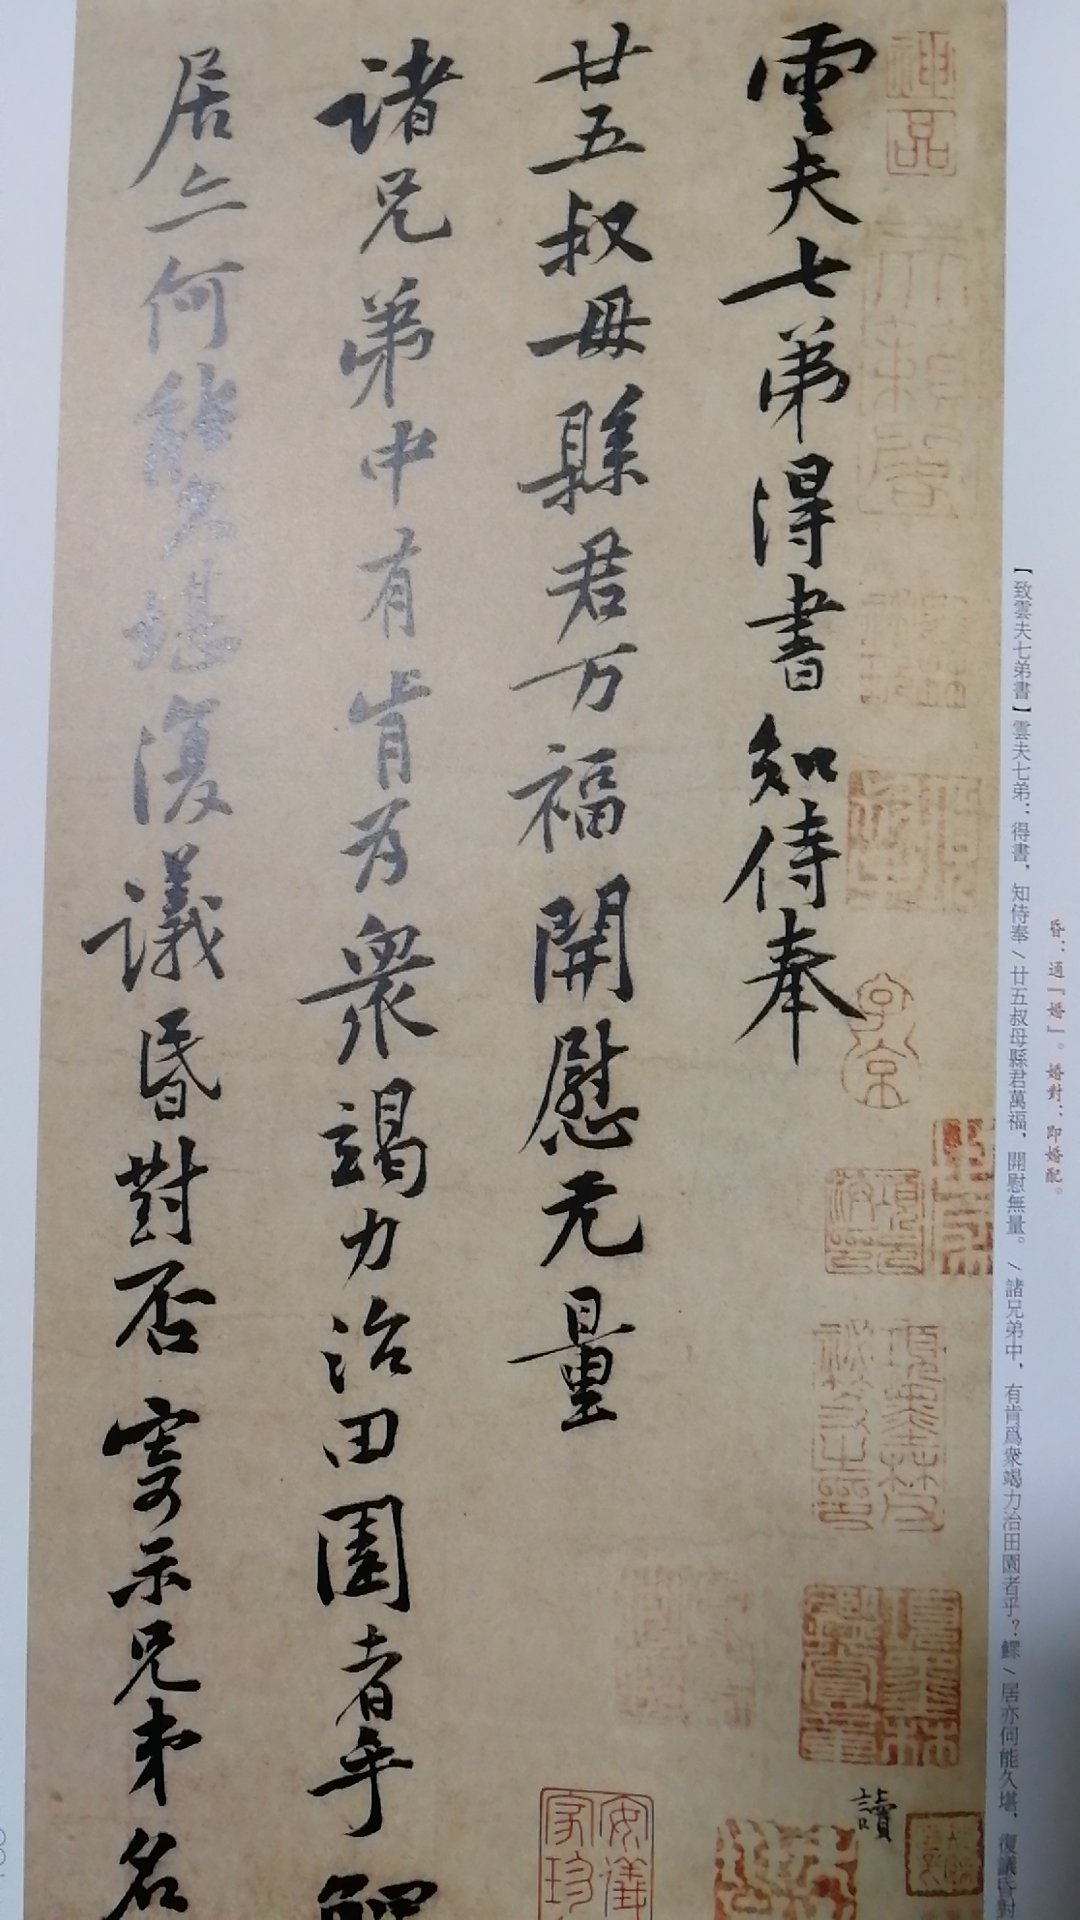 昏：通「婚」。婚對：即婚配。
【致雲夫七弟書】雲夫七弟：得書，知侍奉／廿五叔母縣君萬福，開慰無量。／諸兄弟中，有肯爲衆竭力治田園者乎？鰥／居亦何能久堪，復議昏對
神品
子京
雲夫七弟得書知侍奉
讀
廿五叔母縣君万福開慰无量
諸兄弟中有肯为衆竭力治田園者乎鰥
居亦何能久堪復議昏對否寄示兄弟名